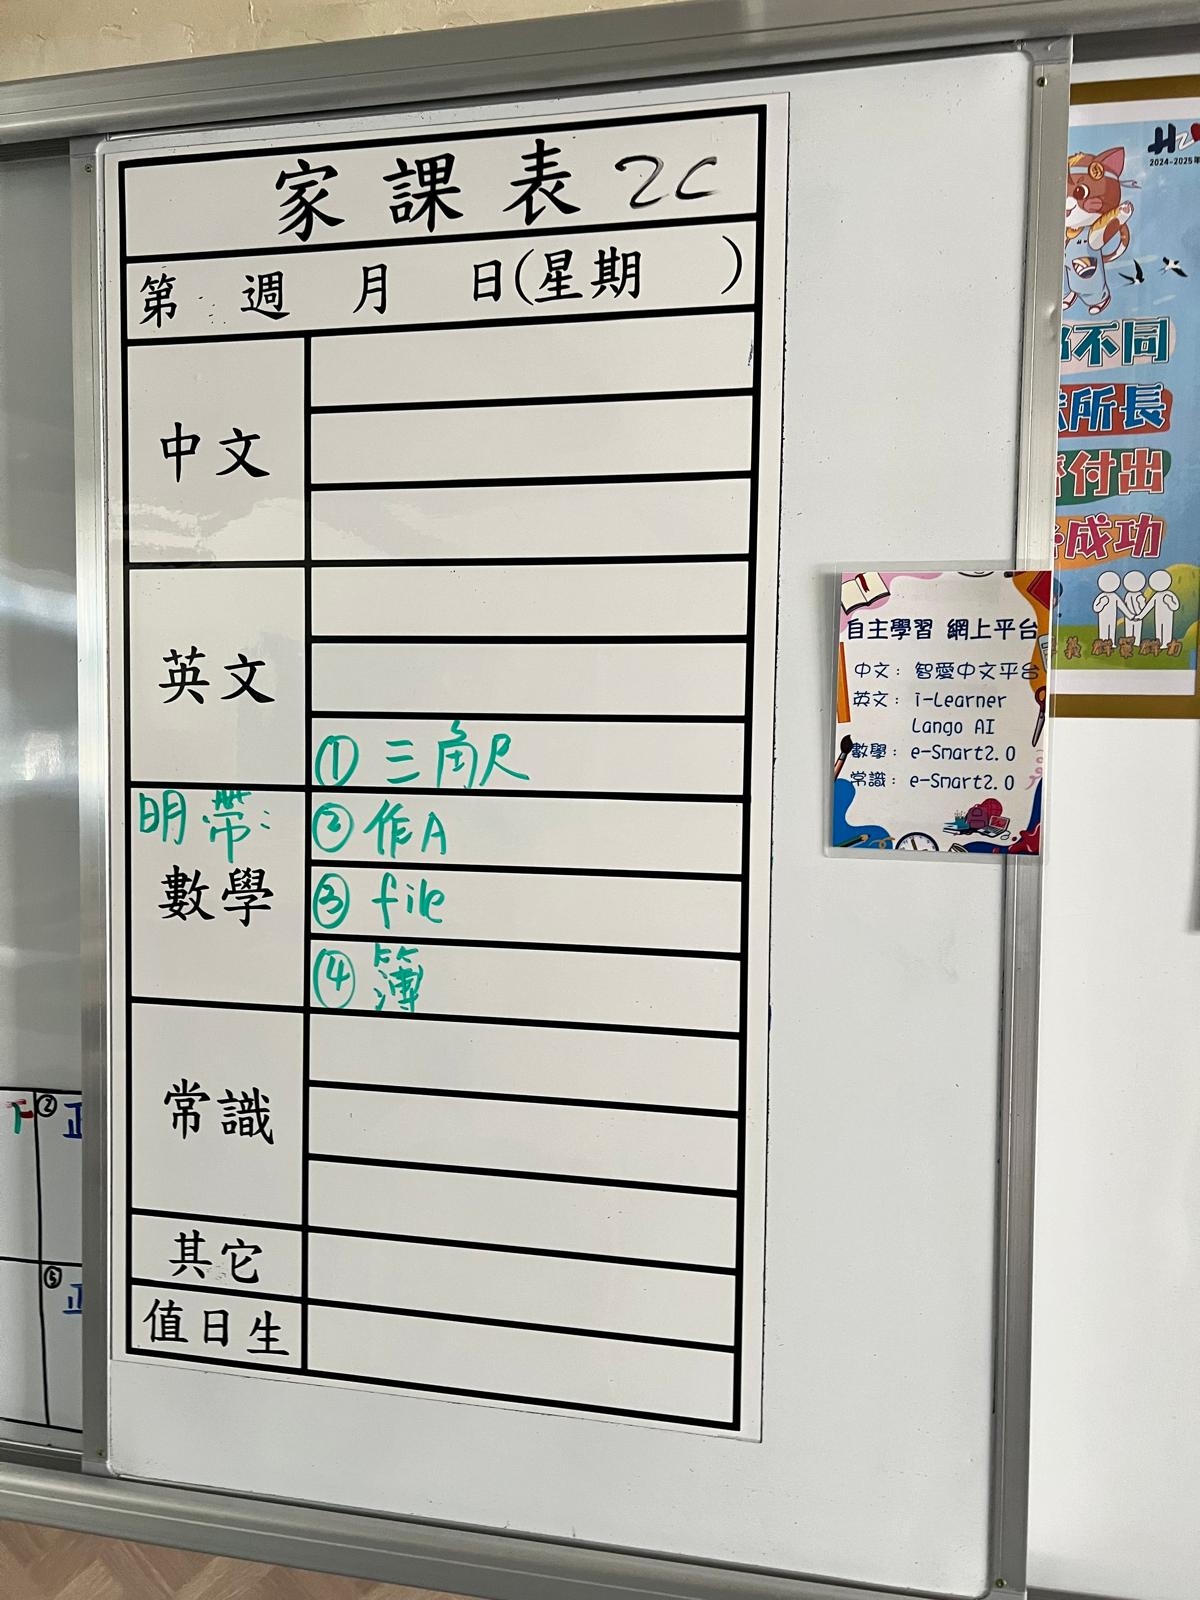 家課表 2C
第 週 月 日(星期 )
中文
英文
① 三角尺
明帶:
② 作A
數學
③ file
④ 簿
常識
其它
值日生
自主學習 網上平台
中文: 智愛中文平台
英文: i-Learner
Lango AI
數學: e-Smart2.0
常識: e-Smart2.0
2024-2025年
不同
所長
付出
成功
群策群力
下 ② 正
⑤ 正